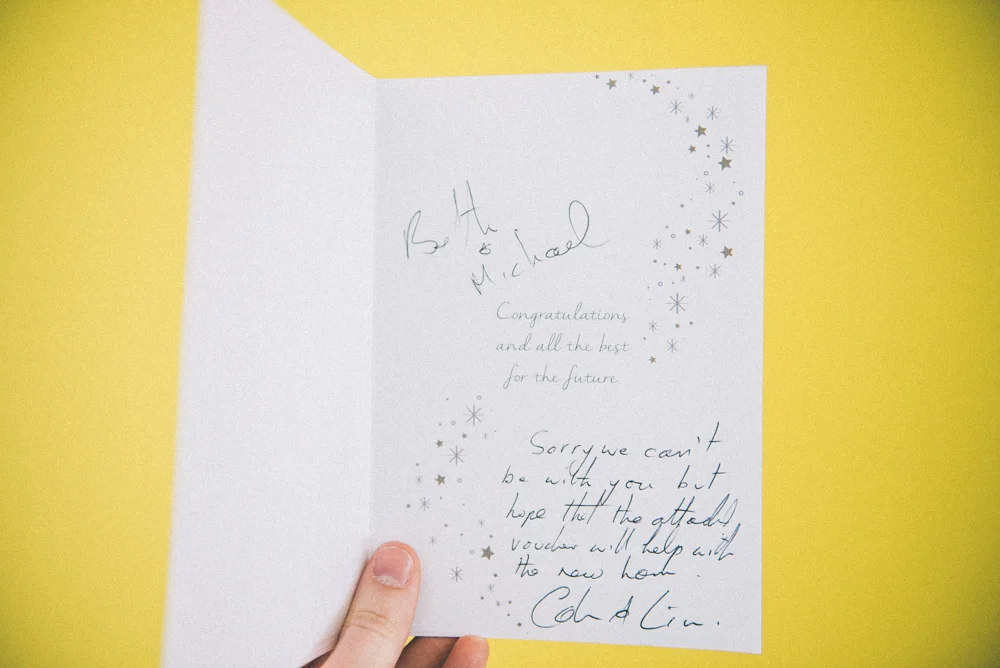 Beth
&
Michael
Congratulations
and all the best
for the future
Sorry we can't
be with you but
hope that the attached
voucher will help with
the new home.
&